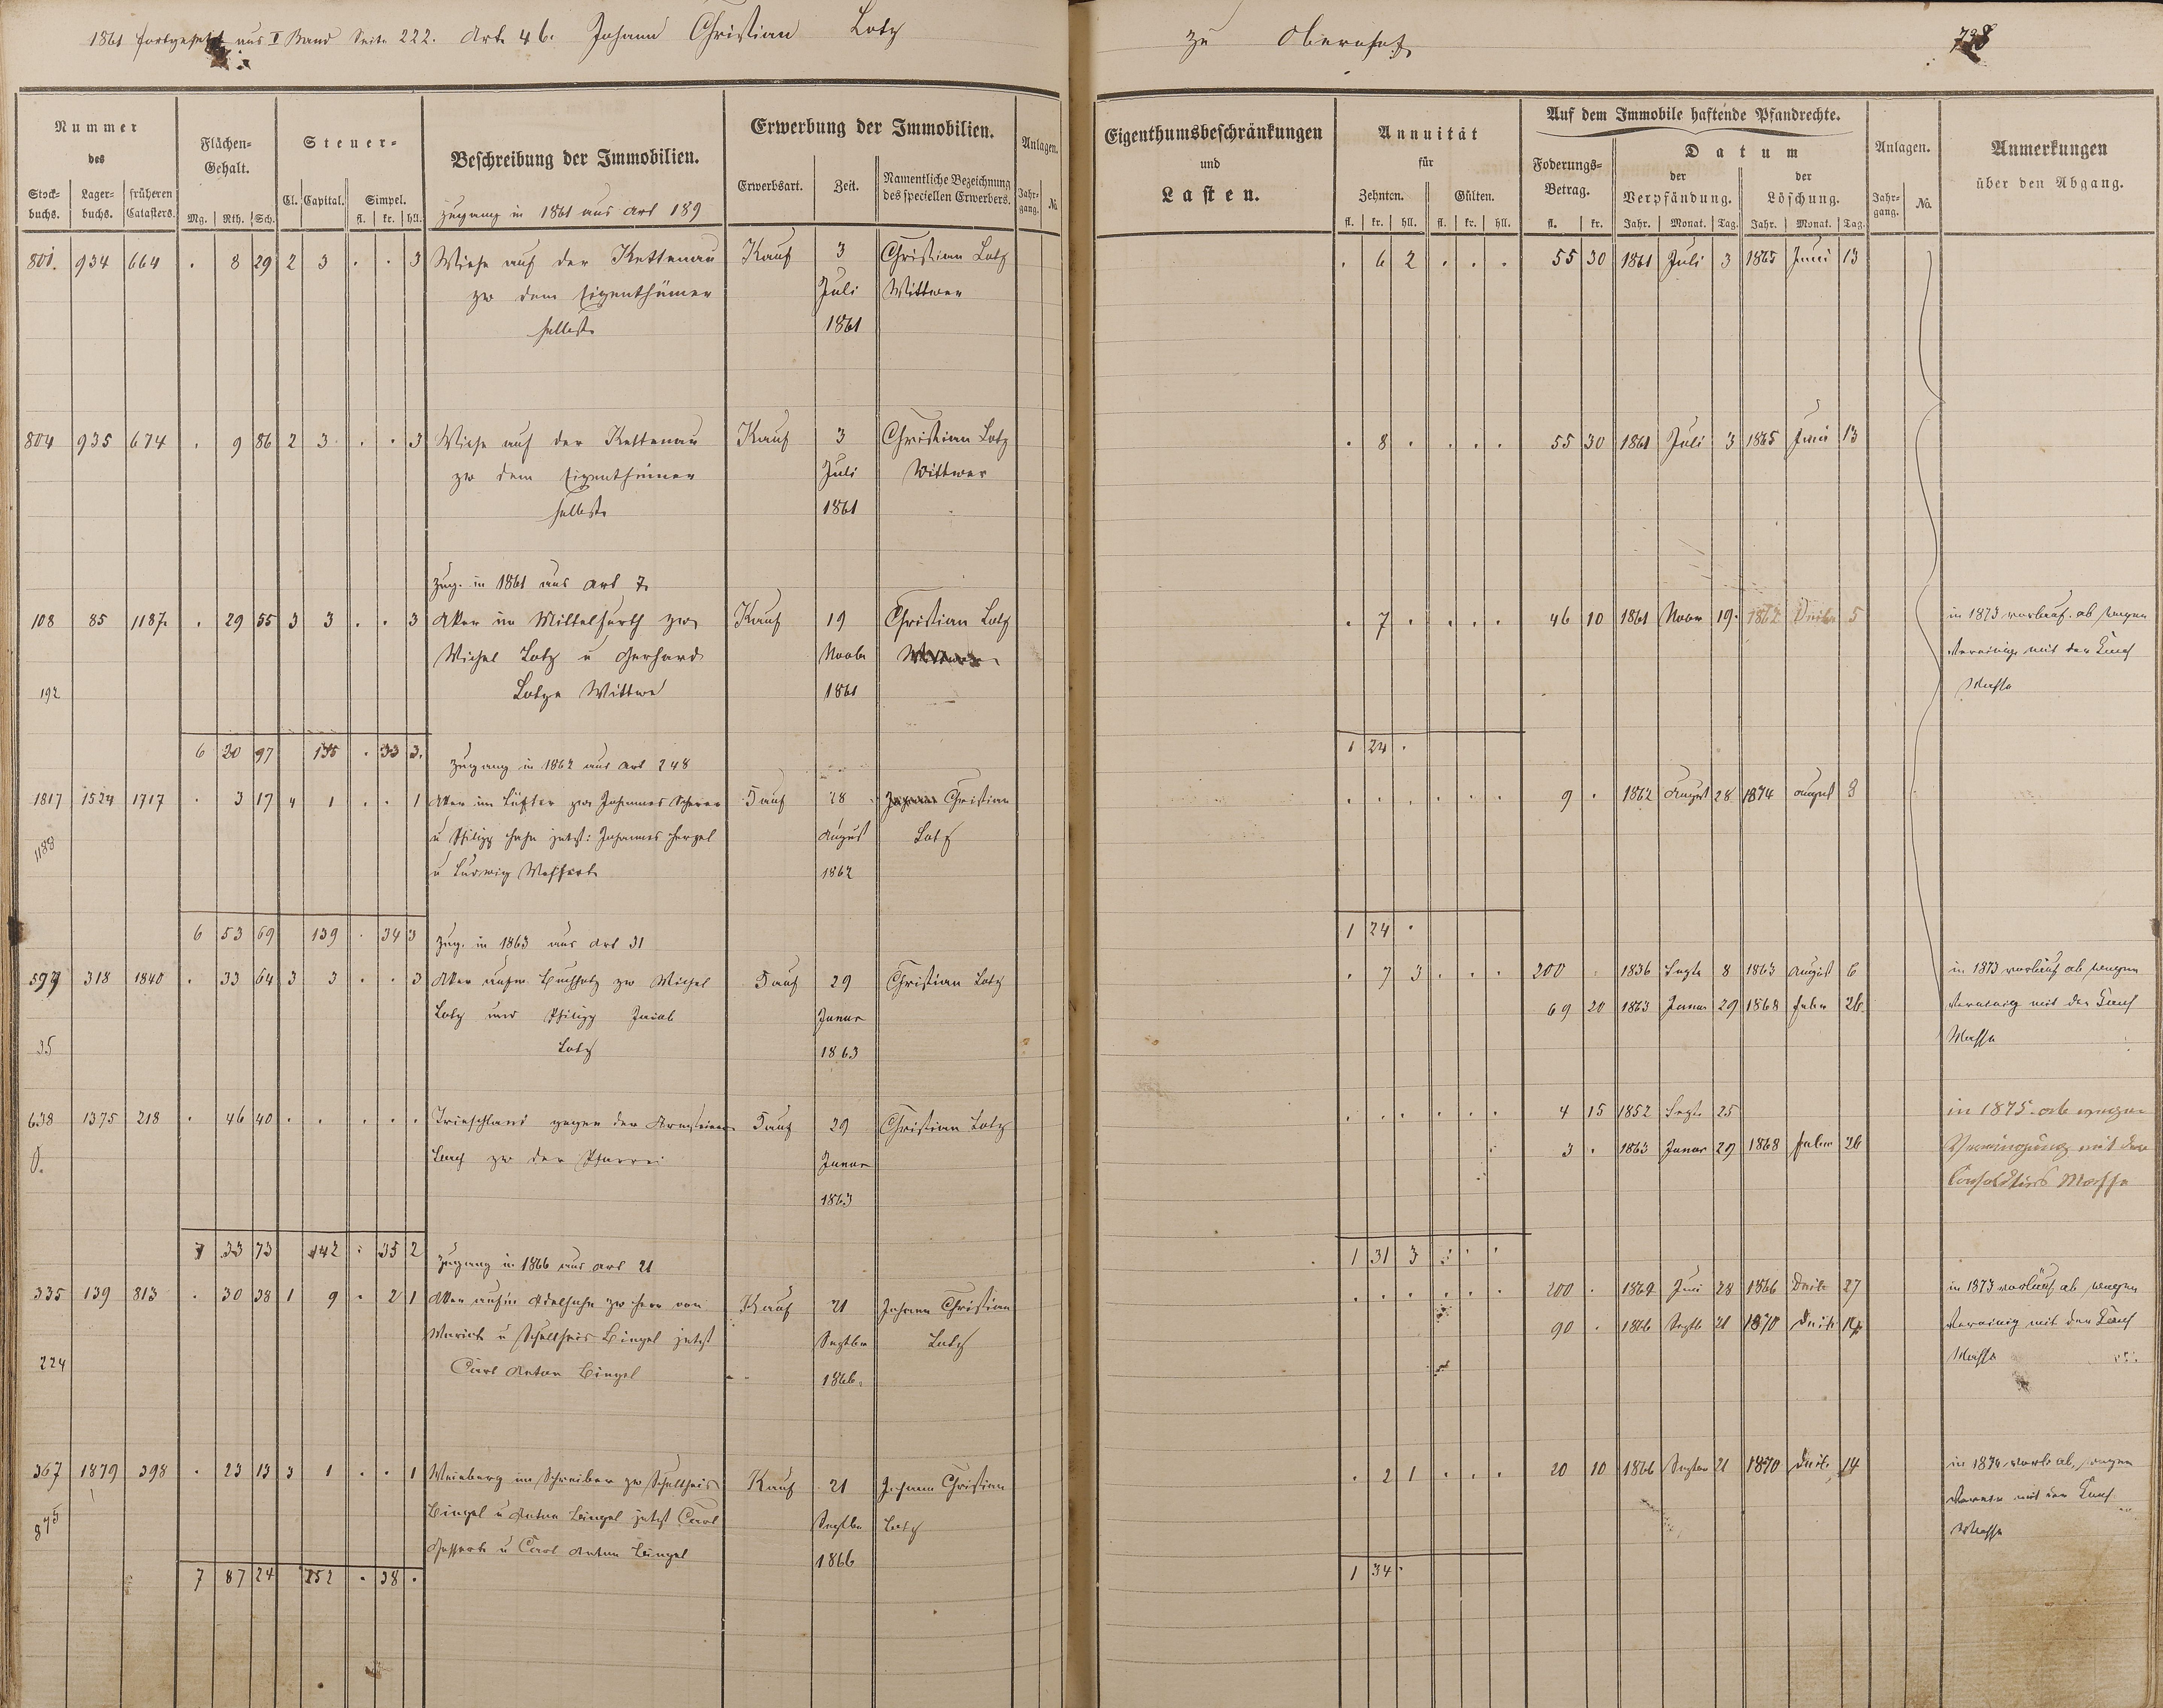 1861 fortgesetzt aus II Band Seite 222. Art. 46. Johann Christian Lotz zu Obernhof
Nummer des
Stockbuchs. Lagerbuchs. früheren Catasters.
Flächen-Gehalt.
Mg. Rth. Sch.
Steuer-
Cl. Capital. Simpel.
fl. kr. hll.
Beschreibung der Immobilien.
Erwerbung der Immobilien.
Erwerbsart. Zeit. Namentliche Bezeichnung des speciellen Erwerbers.
Anlagen.
Jahrgang. №
Eigenthumsbeschränkungen
und
Lasten.
Annuität
für
Zehnten. Gülten.
fl. kr. hll. fl. kr. hll.
Auf dem Immobile haftende Pfandrechte.
Foderungs-Betrag.
fl. kr.
Datum
der Verpfändung. der Löschung.
Jahr. Monat. Tag. Jahr. Monat. Tag.
Anlagen.
Jahrgang. No.
Anmerkungen
über den Abgang.
Zugang in 1861 aus Art 189
801. 934 664 . 8 29 2 3 . . 3 Wiese auf der Kettenau Kauf 3 Christian Lotz . 6 2 . . . 55 30 1861 Juli 3 1865 Juni 13
zw dem Eigenthümer Juli Wittwer
selbst 1861
804 935 674 . 9 86 2 3 . . 3 Wiese auf der Kettenau Kauf 3 Christian Lotz . 8 . . . . 55 30 1861 Juli 3 1865 Juni 13
zw dem Eigenthümer Juli Wittwer
selbst 1861
Zug. in 1861 aus Art 7
108 85 1187 . 29 55 3 3 . . 3 Acker im zw Kauf 19 Christian Lotz . 7 . . . . 46 10 1861 Novbr 19. 5 in 1873 ab wegen
Michel Lotz u Gerhard Novbr mit der
192 Lotze Wittwe 1861 Masse
6 20 97 . 33 3. 1 24 .
Zugang in 1862 aus Art 248
1817 1524 1717 . 3 17 4 1 . . 1 Acker im zw Johannes Kauf 28 Christian . . . . . . 9 . 1862 August 28 1874 August 8
u Philipp jetzt: Johannes August Lotz
1188 u Ludwig 1862
6 53 69 139 . 34 3 1 24 .
Zug. in 1863 aus Art 31
318 1840 . 33 64 3 3 . . 3 Acker zw Michel Kauf 29 Christian Lotz . 7 3 . . . 200 . 1836 Septr 8 1863 August 6 in 1873 ab wegen
Lotz und Philipp Jacob Januar 69 20 1863 Januar 29 1868 Febr 26. mit der
35 Lotz 1863 Masse
638 1375 218 . 46 40 . . . . . Trieschland gegen der Kauf 29 Christian Lotz . . . . . . 4 15 1852 Septr 25 in 1875 ab wegen
zw der Pfarrei Januar 3 . 1863 Januar 29 1868 Febr 26 Vereinigung mit der
1863 Masse
7 33 73 142 . 35 2 1 31 3 . . .
Zugang in 1866 aus Art 21
335 139 813 . 30 38 1 9 . 2 1 Acker zw Herr von Kauf 21 Johann Christian . . . . . . 200 . Juni 28 1866 Decbr 27 in 1873 ab wegen
u Schultheis Bingel jetzt Septbr Lotz 90 . 1866 Septb 21 1870 Decbr 14 mit der
224 Carl Anton Bingel 1866. Masse
367 1879 398 . 23 13 3 1 . . 1 Weinberg im Schreiber zw Schultheis Kauf 21 Johann Christian . 2 1 . . . 20 10 1866 Septbr 21 1870 Decbr 14 in 1874 ab, wegen
Bingel u Anton Bingel jetzt Carl Septbr Lotz mit der
875 u Carl Anton Bingel 1866 Masse
7 87 24 152 . 38 . 1 34 .